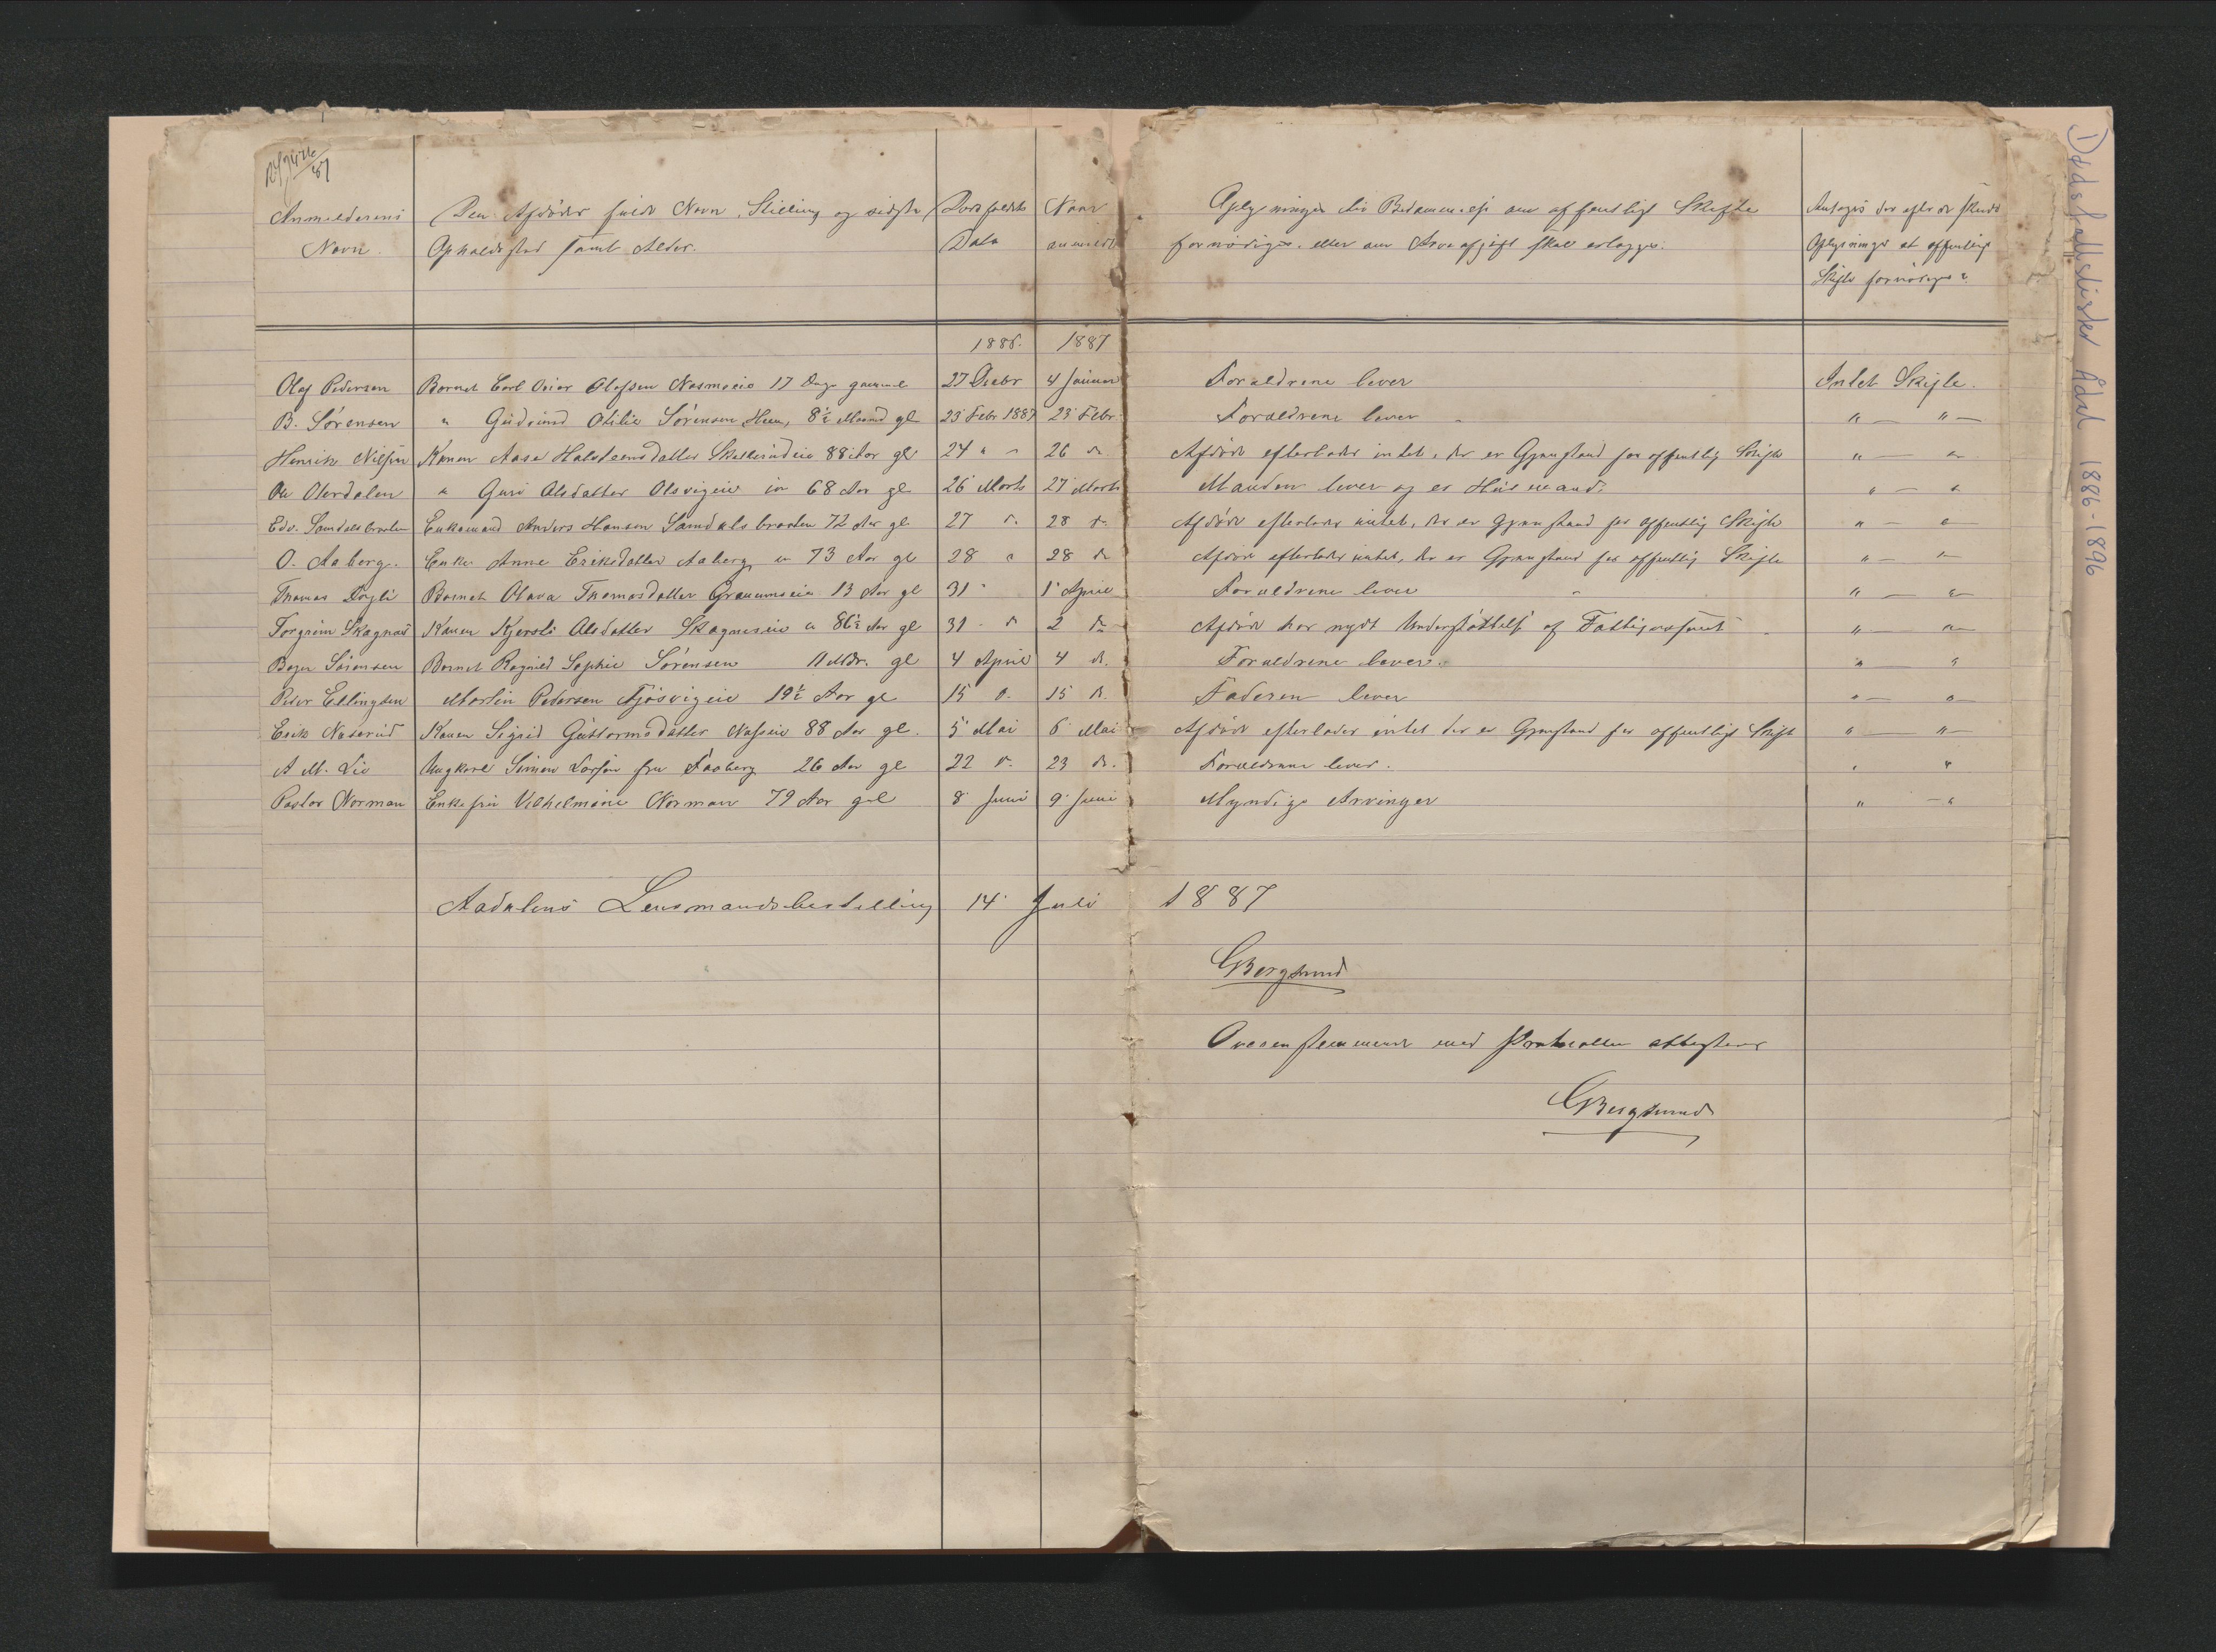 Anmelderens Navn.
Den Afdødes fulde Navn, Stilling og sidste Opholdssted samt Alder.
Dødsfaldets Data
Naar anmeldt
Oplysninger til Bedømmelse om offentligt Skifte fornødiges eller om Arveafgift skal erlægges.
Antages der efter de skeede Oplysninger at offentligt Skifte fornødiges?
1886. 1887
Olaf Pedersen Barnet Carl Olafsen 17 Dage gammel 27 Decbr 4 Januar Forældrene lever Intet Skifte.
B. Sørensen " Gudrund Otilie Sørensen Heen, 8½ Maaned gl 23 Febr 1887 23 Febr. Forældrene lever " — " —
Henrik Nilsen Konen Aase Halsteensdatter 88 Aar gl 24 " 26 d. Afdøde efterlader intet, der er Gjenstand for offentlig Skifte " — " —
Ole Olerdalen " Guri Olsdatter Olsvigeie 68 Aar gl 26 Marts 27 Marts Manden lever og er Husmand. " — "
Edv. Samdalsbraaten Enkemand Anders Hansen Samdalsbraaten 72 Aar gl. 27 d. 28 d. Afdøde efterlader intet, der er Gjenstand for offentlig Skifte " — " —
O. Aaberg. Enke Anne Eriksdatter Aaberg 73 Aar gl 28 " 28 d. Afdøde efterlader intet, der er Gjenstand for offentlig Skifte " — " —
Thomas Barnet Olava Thomasdatter 13 Aar gl 31 1 April Forældrene lever " — " —
Torgrim Skagnæs Konen Kjersti Olsdatter Skagnæseie 86½ Aar gl 31 d. 2 d. Afdøde har nydt Understøttelse af Fattigvæsenet " — " —
Sørensen Barnet Ragnild Sophie Sørensen Mdr. gl 4 April 4 d. Forældrene lever. " — "
Peder Ellingsen Martin Pedersen 19½ Aar gl 15 d. 15 d. Faderen lever " — " —
Erik Næserud Konen Sigrid Guttormsdatter 88 Aar gl. 5 Mai 6 Mai Afdøde efterlader intet der er Gjenstand for offentligt Skifte " — " —
A. M. Lie Ungkarl Simen Larsen fra Faaberg 26 Aar gl 22 d. 23 d. Forældrene lever. " "
Pastor Norman Enkefru Vilhelmine Norman 79 Aar gl 8 Juni 9 Juni Myndige Arvinger " — "
Aadalens Lensmandsbestilling 14 Juli 1887
CBergsund
Overensstemmende med Protocollen attesteres
CBergsund
1) Dødsfallslister Ådal 1886-1896